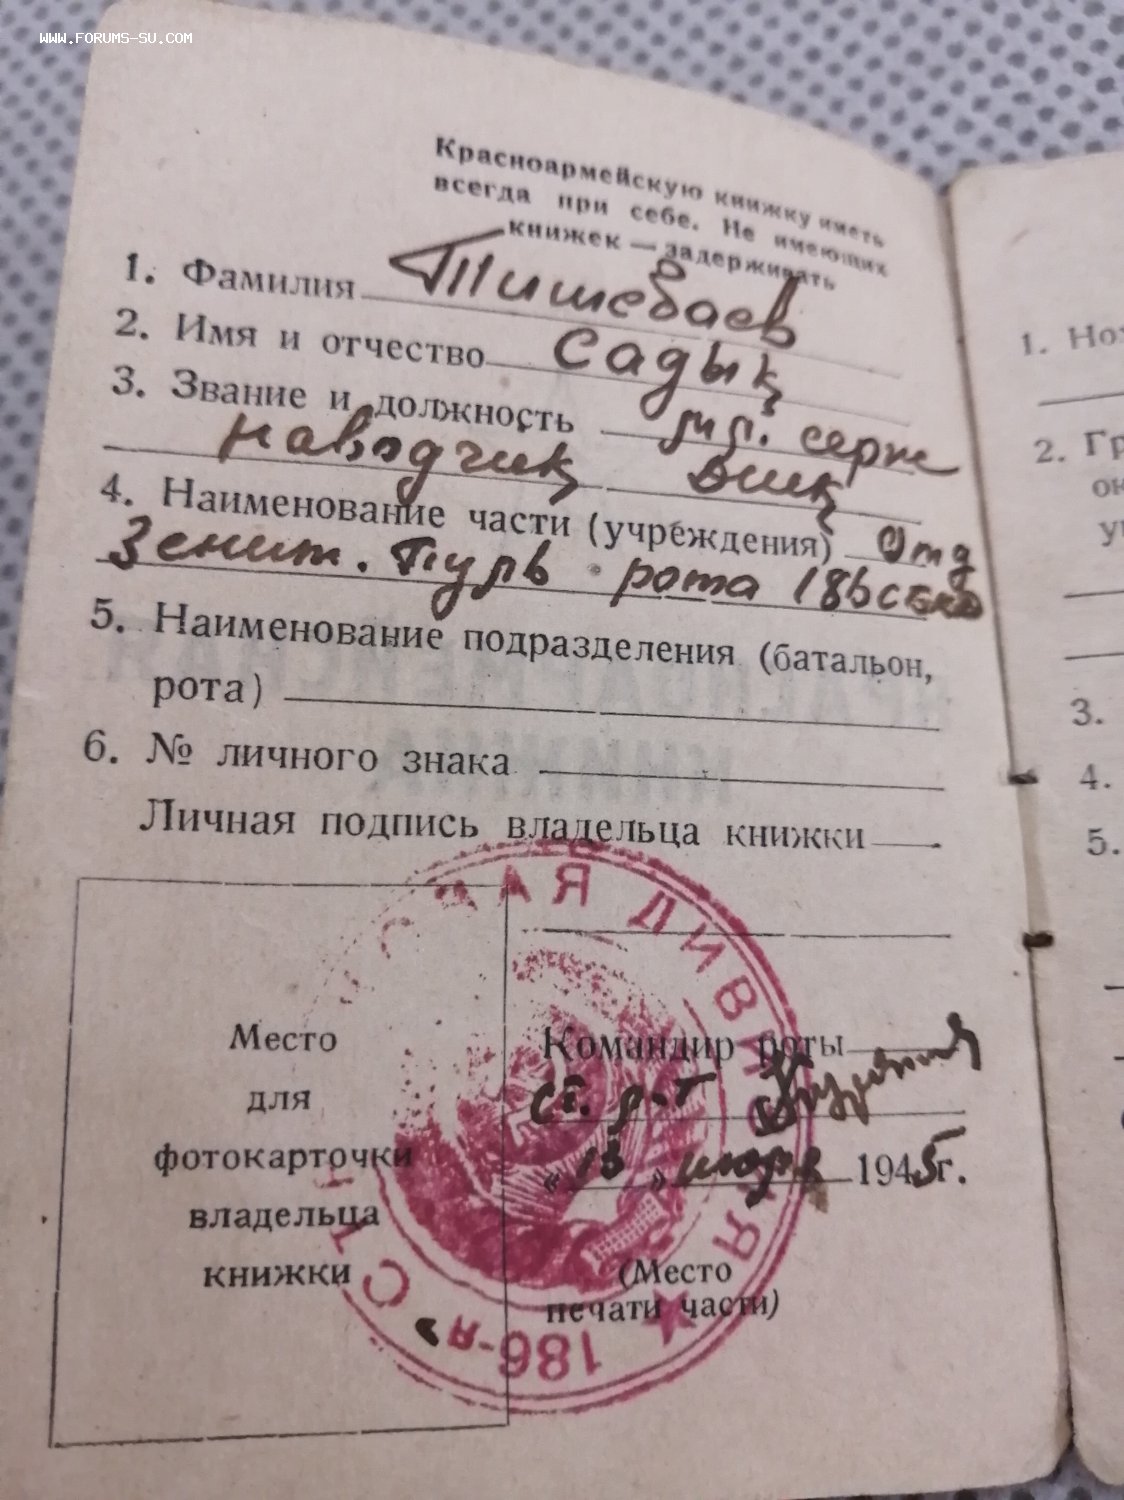 WWW.FORUMS-SU.COM
Красноармейскую книжку иметь
всегда при себе. Не имеющих
книжек — задерживать
1. Фамилия Тишебаев
2. Имя и отчество Садық
3. Звание и должность мл. серж
наводчиқ
4. Наименование части (учреждения) Отд
Зенит. Пульв. рота 186
5. Наименование подразделения (батальон,
рота)
6. № личного знака
Личная подпись владельца книжки
Место
для
фотокарточки
владельца
книжки
Командир роты
ст. л-т
«13» 1945г.
(Место
печати части)
186-я СТ КАЯ ДИВИЗИЯ
1. Но
2. Гр
ок
у
3.
4.
5.